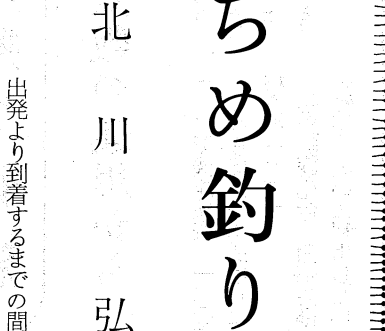 ちめ釣り
北川弘
出発より到着するまでの間